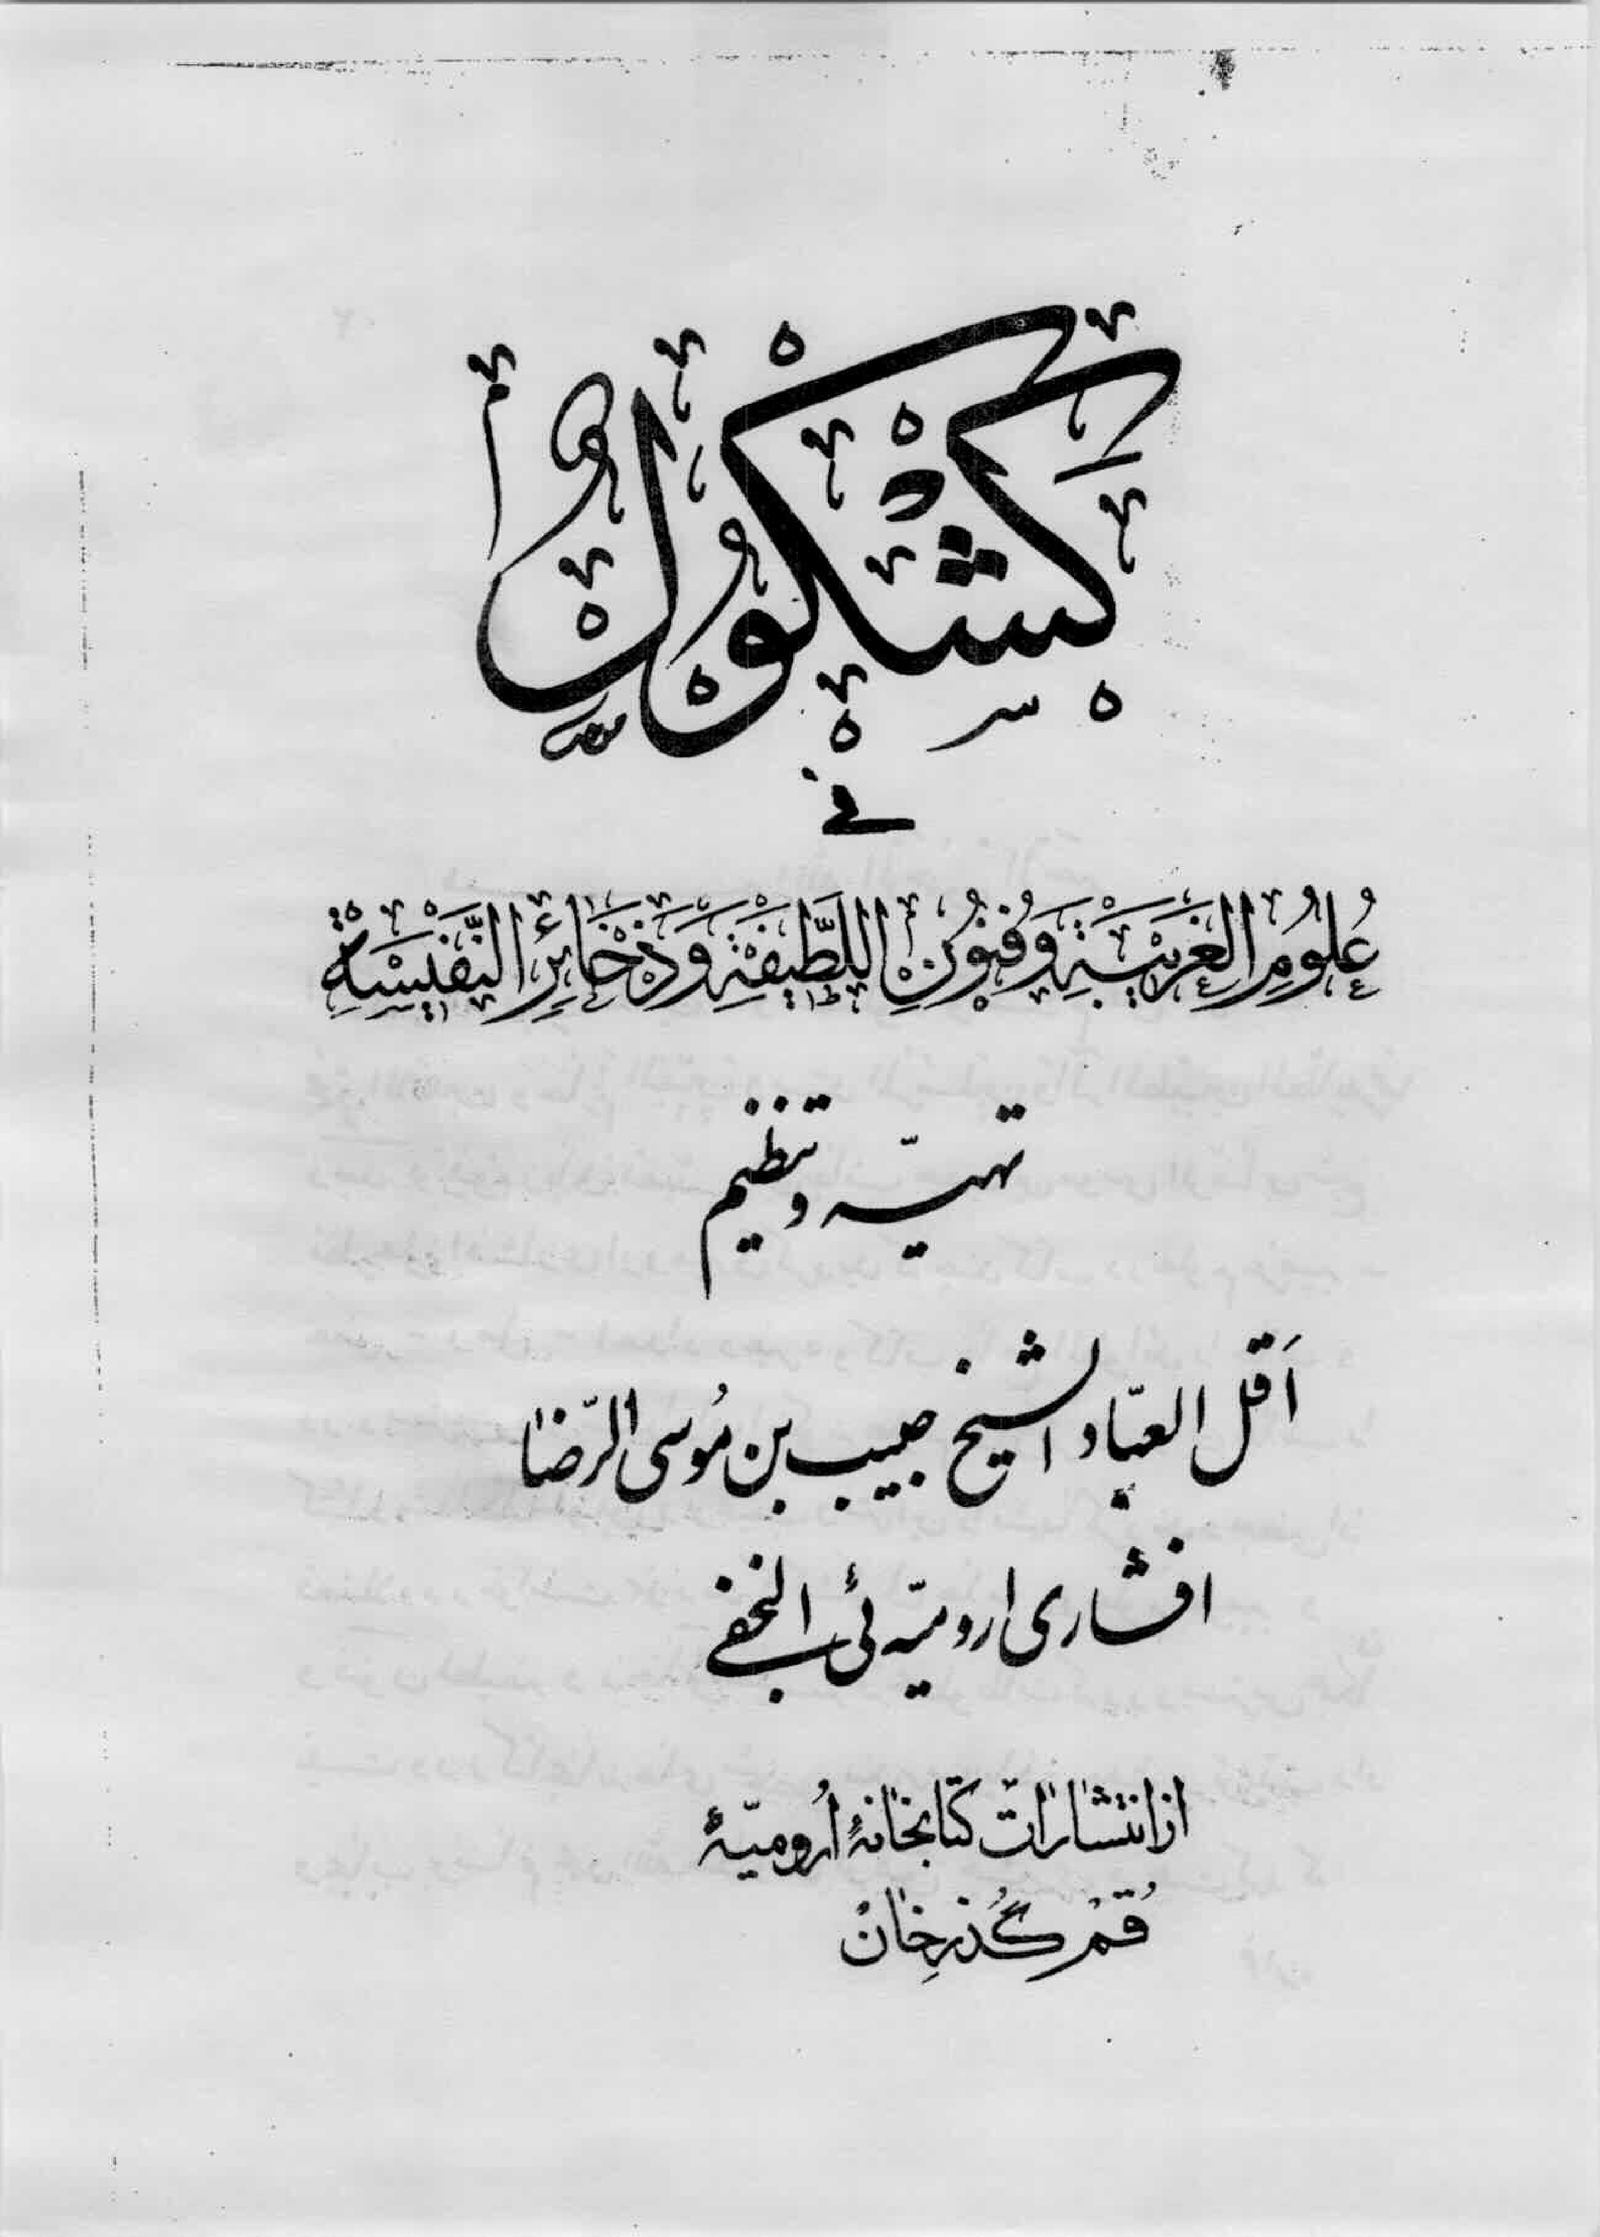 كَشْكُوْل
في
عُلُومِ الْغَرَيْبَةِ وَفُنُوْنِ اللَّطِيفَةِ وَذَخَائِرِ النَّفِيْسَةِ
تهیّه و تنظیم
اَقل العبّاد الشیخ حبیب بن مُوسی الرّضا
افشاری ارومیّه ئی النجفے
از انتشارات کتابخانهٔ اُرومیّهٔ
قُمْ گُذرِخانْ